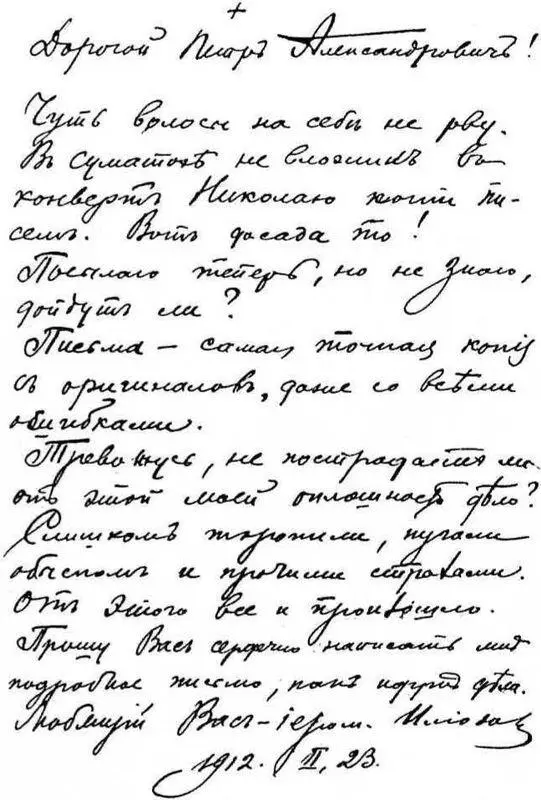 +
Дорогой Петръ Александровичъ!
Чуть волосы на себѣ не рву.
Въ суматохѣ не вложилъ въ
конвертъ Николаю копіи пи-
семъ. Вотъ досада то!
Посылаю теперь, но не знаю,
дойдутъ ли?
Письма – самая точная копія
съ оригиналовъ, даже со всѣми
ошибками.
Тревожусь, не пострадаетъ ли
отъ этой моей оплошности дѣло?
Слишкомъ торопили, пугали
обыскомъ и прочими страхами.
Отъ этого все и произошло.
Прошу Васъ сердечно написать мнѣ
подробное письмо, какъ идутъ дѣла.
Любящій Васъ – іером. Иліодор
1912. II, 23.